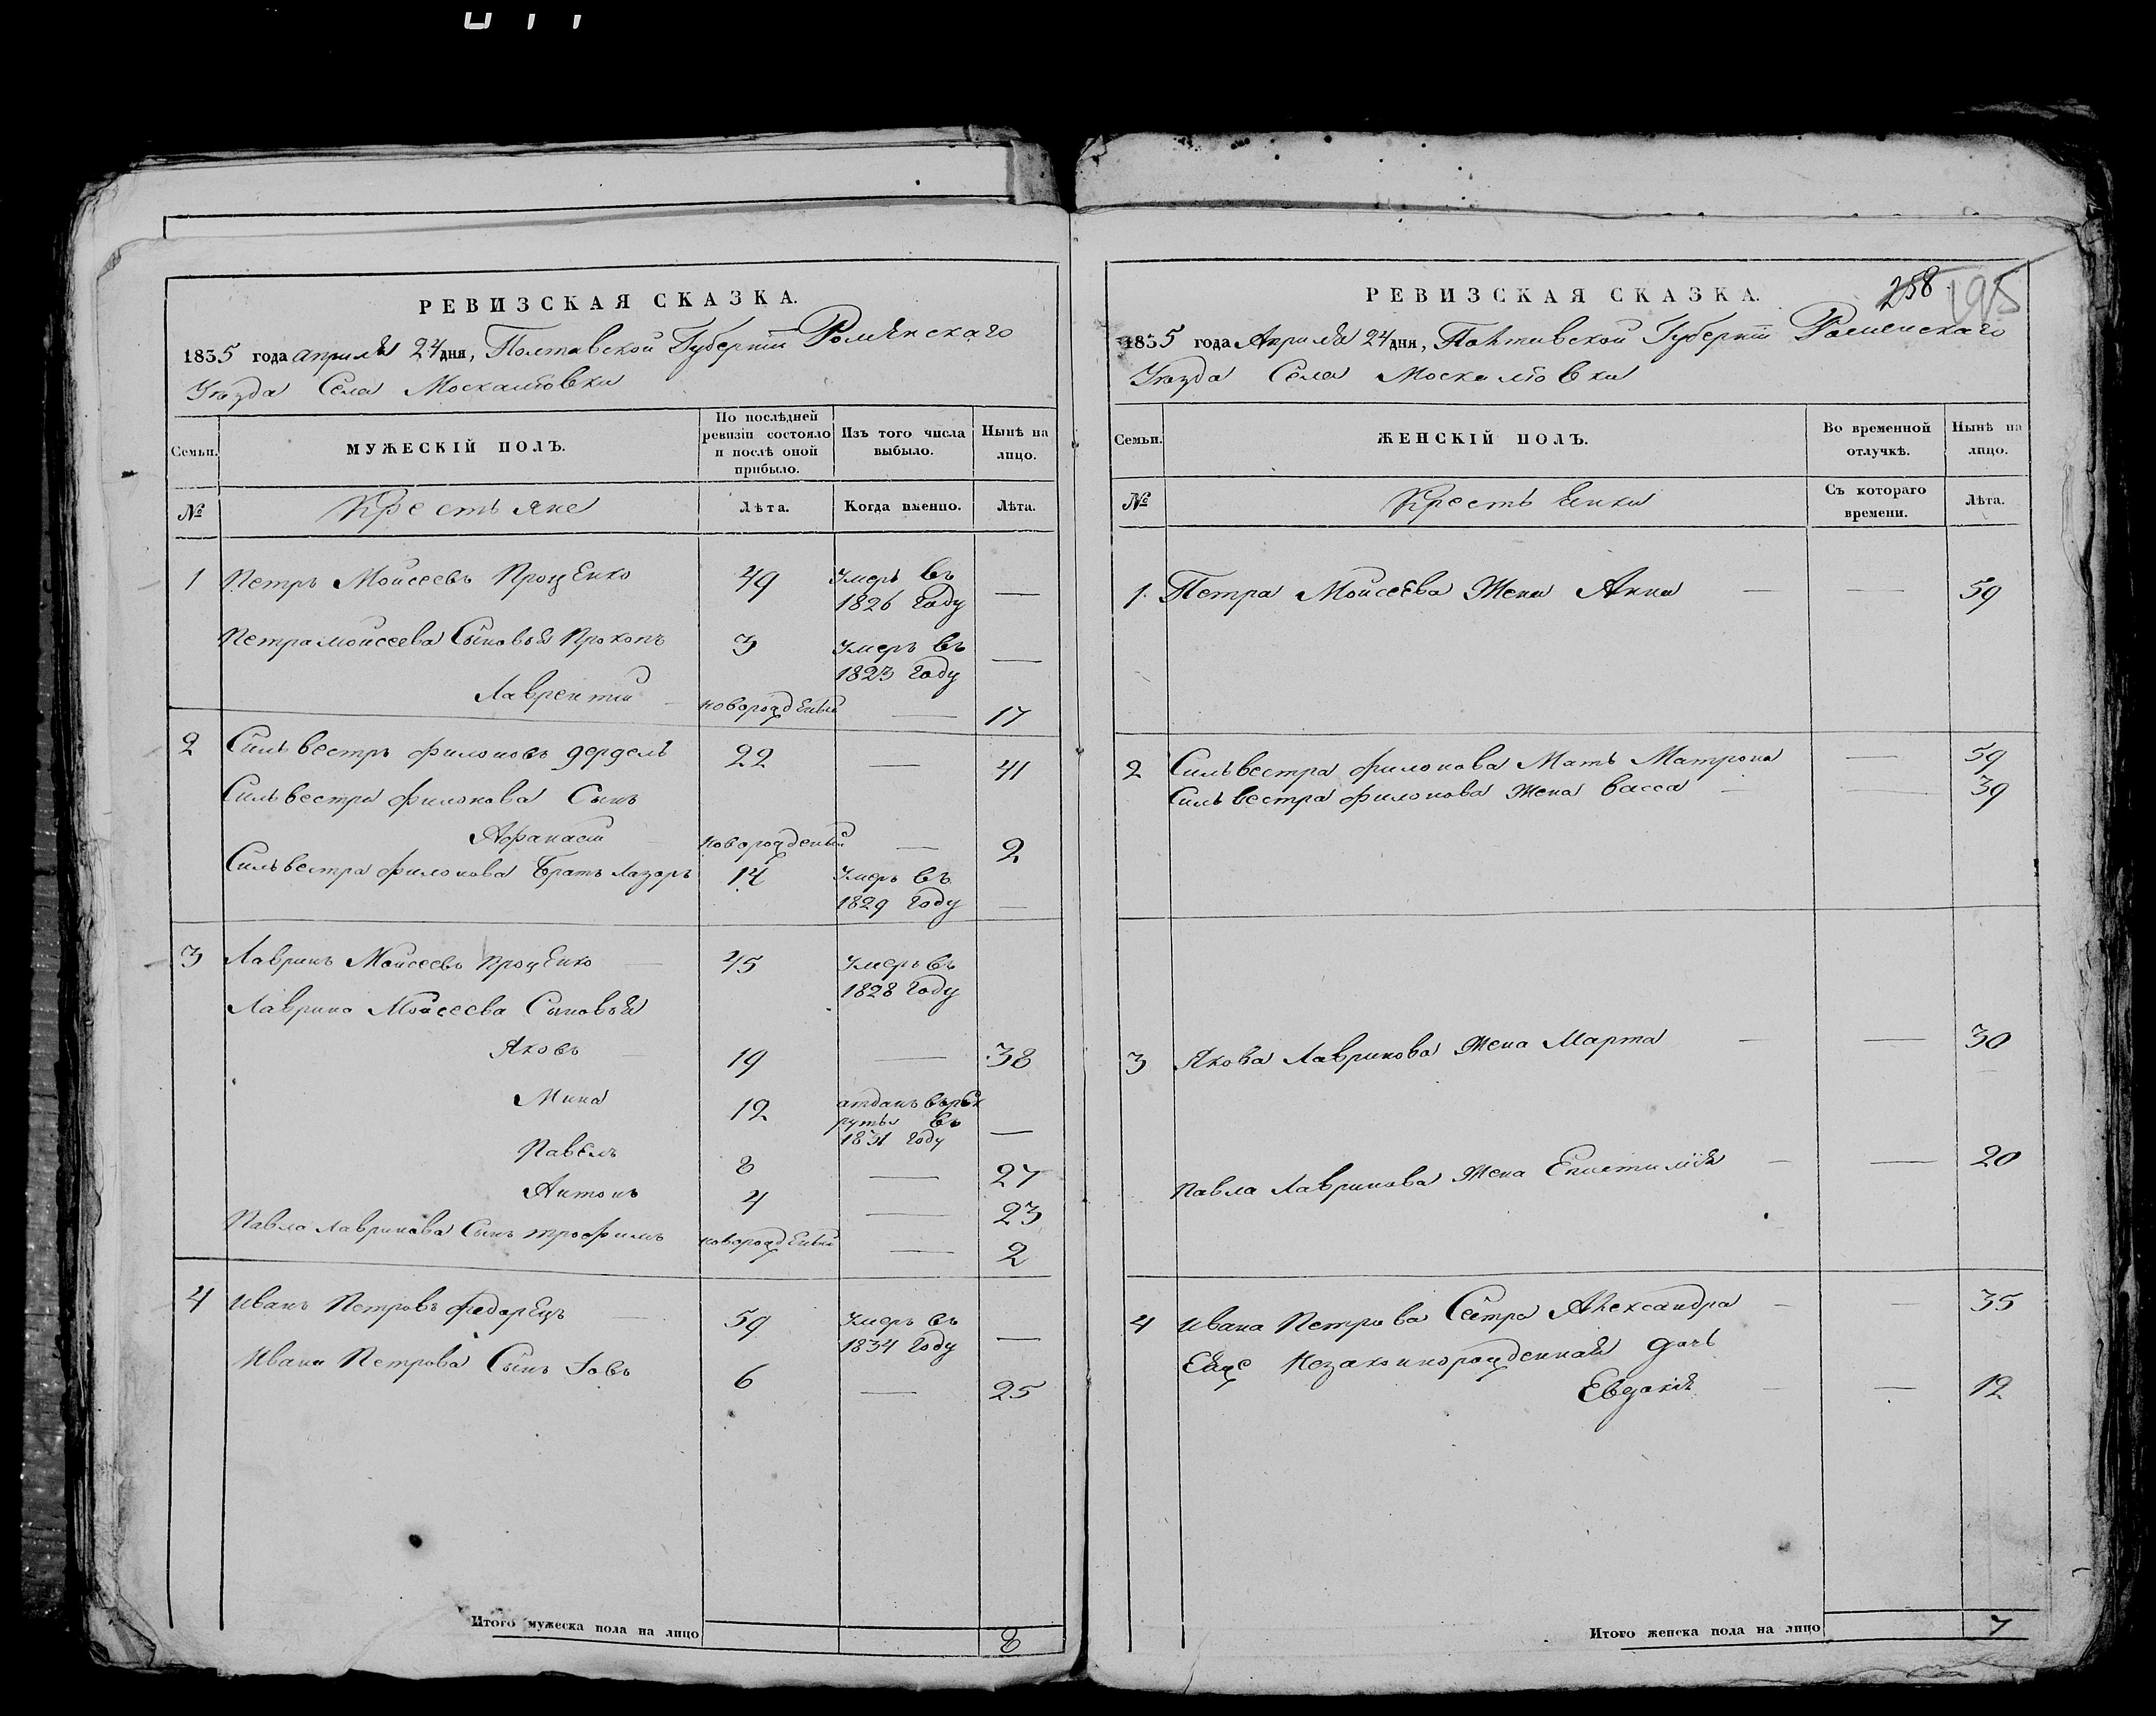 РЕВИЗСКАЯ СКАЗКА.
1835 года апреля 24 дня, Полтавской Губернии Роменскаго
Уезда Села Москалювки
Семьи. МУЖЕСКІЙ ПОЛЪ. По послѣдней ревизіи состояло и послѣ оной прибыло. Изъ того числа выбыло. Нынѣ на лицо.
№ Крестьяне Лѣта. Когда именно. Лѣта.
1 Петръ Моисеевъ Проценко 49 Умеръ въ 1826 году —
Петра Моисеева Сыновья Прокопъ 3 Умеръ въ 1823 году —
Лаврентий новорожденый — 17
2 Сильвестръ Филоновъ 22 — 41
Сильвестра Филонова Сынъ
Афанасий новорожденый — 2
Сильвестра Филонова Братъ Лазарь 14 Умеръ въ 1829 году —
3 Лавринъ Моисеевъ Проценко — 45 Умеръ въ 1828 году
Лаврина Моисеева Сыновья
Яковъ 19 — 38
Мина 12 отданъ въ рекруты въ 1831 году —
Павелъ 8 — 27
Антонъ 4 — 23
Павла Лавринова Сынъ Трофимъ новорожденый — 2
4 Иванъ Петровъ Федорецъ — 59 Умеръ въ 1834 году —
Ивана Петрова Сынъ Іовъ 6 — 25
Итого мужеска пола на лицо 8
258
195
РЕВИЗСКАЯ СКАЗКА.
1835 года Апреля 24 дня, Полтавской Губернии Роменскаго
Уезда Села Москалювки
Семьи. ЖЕНСКІЙ ПОЛЪ. Во временной отлучкѣ. Нынѣ на лицо.
№ Крестьянки Съ котораго времени. Лѣта.
1. Петра Моисеева Жена Анна — — 59
2 Сильвестра Филонова Мать Матрона — 59
Сильвестра Филонова Жена Васса — — 39
3 Якова Лавринова Жена Марта — — 30
Павла Лавринова Жена Епистимия — — 20
4 Ивана Петрова Сестра Александра — — 35
Ея незаконнорожденная дочь
Евдокия — — 12
Итого женска пола на лицо 7